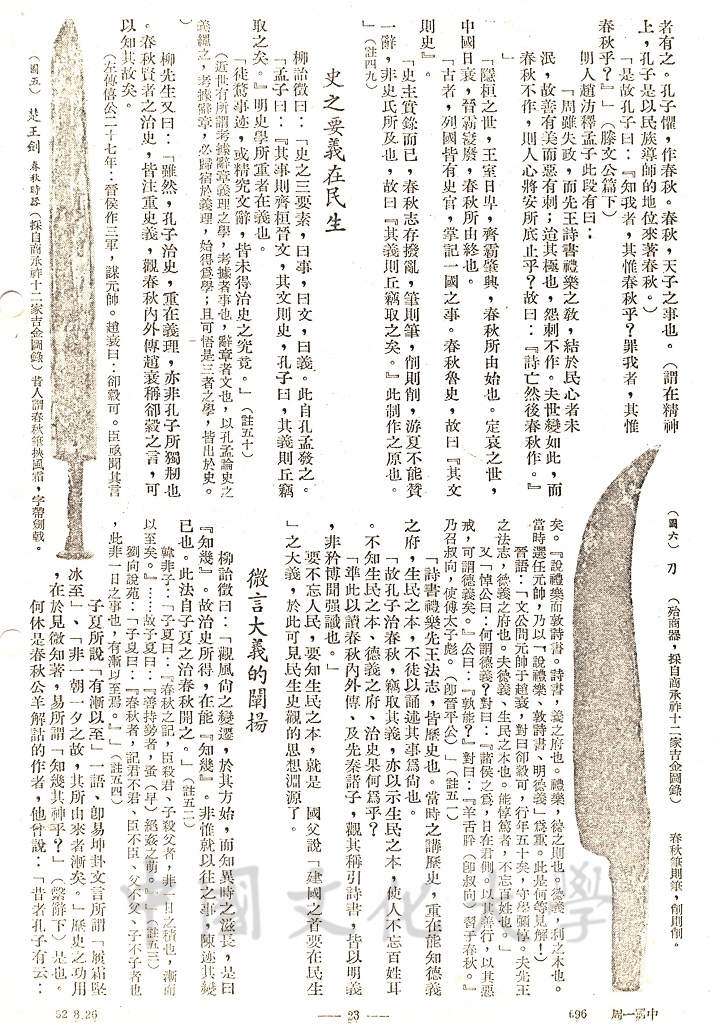 者有之。孔子懼，作春秋。春秋，天子之事也。（謂在精神
上，孔子是以民族導師的地位來著春秋。）
「是故孔子曰：『知我者，其惟春秋乎？罪我者，其惟
春秋乎？』」（滕文公篇下）
明人趙汸釋孟子此段有曰：
「周雖失政，而先王詩書禮樂之教，結於民心者未
泯，故善有美而惡有刺；迨其極也，怨刺不作。夫世變如此，而
春秋不作，則人心將安所底止乎？故曰：『詩亡然後春秋作。』
」
「隱桓之世，王室日卑，齊霸肇興，春秋所由始也。定哀之世，
中國日衰，晉霸寖廢，春秋所由終也。
「古者，列國皆有史官，掌記一國之事。春秋魯史，故曰『其文
則史』。
「史主實錄而已，春秋志存撥亂，筆則筆，削則削，游夏不能贊
一辭，非史氏所及也，故曰『其義則丘竊取之矣。』此制作之原也。
」（註四九）
史之要義在民生
柳詒徵曰：「史之三要素，曰事，曰文，曰義。此自孔孟發之。
「孟子曰：『其事則齊桓晉文，其文則史，孔子曰，其義則丘竊
取之矣。』明史學所重者在義也。
「徒騖事迹，或精究文辭，皆未得治史之究竟。」（註五十）
（近世有所謂考據辭章義理之學，考據者事也，辭章者文也，以孔孟論史之
義繩之，考據辭章，必歸宿於義理，始得為學；且可悟是三者之學，皆出於史。
）
柳先生又曰：「雖然，孔子治史，重在義理，亦非孔子所獨剏也
。春秋賢者之治史，皆注重史義，觀春秋內外傳趙衰稱卻縠之言，可
以知其故矣。
（左傳僖公二十七年：晉侯作三軍，謀元帥。趙衰曰：卻縠可。臣亟聞其言
（圖五）　楚王劍　春秋時器（採自商承祚十二家吉金圖錄）昔人謂春秋筆挾風霜，字帶劍戟。
（圖六）　刀　（殆商器，採自商承祚十二家吉金圖錄）　春秋筆則筆，削則削。
矣。『說禮樂而敦詩書。詩書，義之府也。禮樂，德之則也。德義，利之本也。
當時選任元帥，乃以「說禮樂、敦詩書、明德義」為重。此是何等見解！）
晉語：「文公問元帥于趙衰，對曰卻縠可，行年五十矣，守學彌惇。夫先王
之法志，德義之府也。夫德義、生民之本也。能惇篤者，不忘百姓也。」
又「悼公曰：何謂德義？對曰：『諸侯之為，日在君側。以其善行，以其惡
戒，可謂德義矣。』公曰：『孰能？』對曰：『羊舌肸（卽叔向）習于春秋。』
乃召叔向，使傅太子彪。（卽晉平公）」（註五一）
「詩書禮樂先王法志，皆歷史也。當時之講歷史，重在能知德義
之府，生民之本，不徒以誦述其事為尙也。
「故孔子治春秋，竊取其義，亦以示生民之本，使人不忘百姓耳
。不知生民之本、德義之府、治史果何為乎？
「準此以讀春秋內外傳、及先秦諸子，觀其稱引詩書，皆以明義
，非矜博聞强識也。」
要不忘人民，要知生民之本，就是　國父說「建國之首要在民生
」之大義，於此可見民生史觀的思想淵源了。
微言大義的闡揚
柳詒徵曰：「觀風尙之變遷，於其方始，而知異時之滋長，是曰
『知幾』。故治史所得，在能『知幾』。非惟就以往之事，陳迹其變
已也。此法自子夏之治春秋開之。」（註五二）
韓非子：「子夏曰：『春秋之記，臣殺君、子殺父者，非一日之積也，漸而
以至矣。』……故子夏曰：『善持勢者，蚤（早）絕姦之萌。』」（註五三）
劉向說苑：「子夏曰：『春秋者，記君不君、臣不臣、父不父、子不子者也
，此非一日之事也，有漸以至焉。』」（註五四）
子夏所說「有漸以至」一語，卽易坤卦文言所謂「履霜堅
冰至」、「非一朝一夕之故，其所由來者漸矣。」歷史之功用
，在於見微知著，易所謂「知幾其神乎？」（繫辭下）是也。
何休是春秋公羊解詁的作者，他曾說：「昔者孔子有云：
中國文化大學
52 8.26
— 23 —
696
中國一周